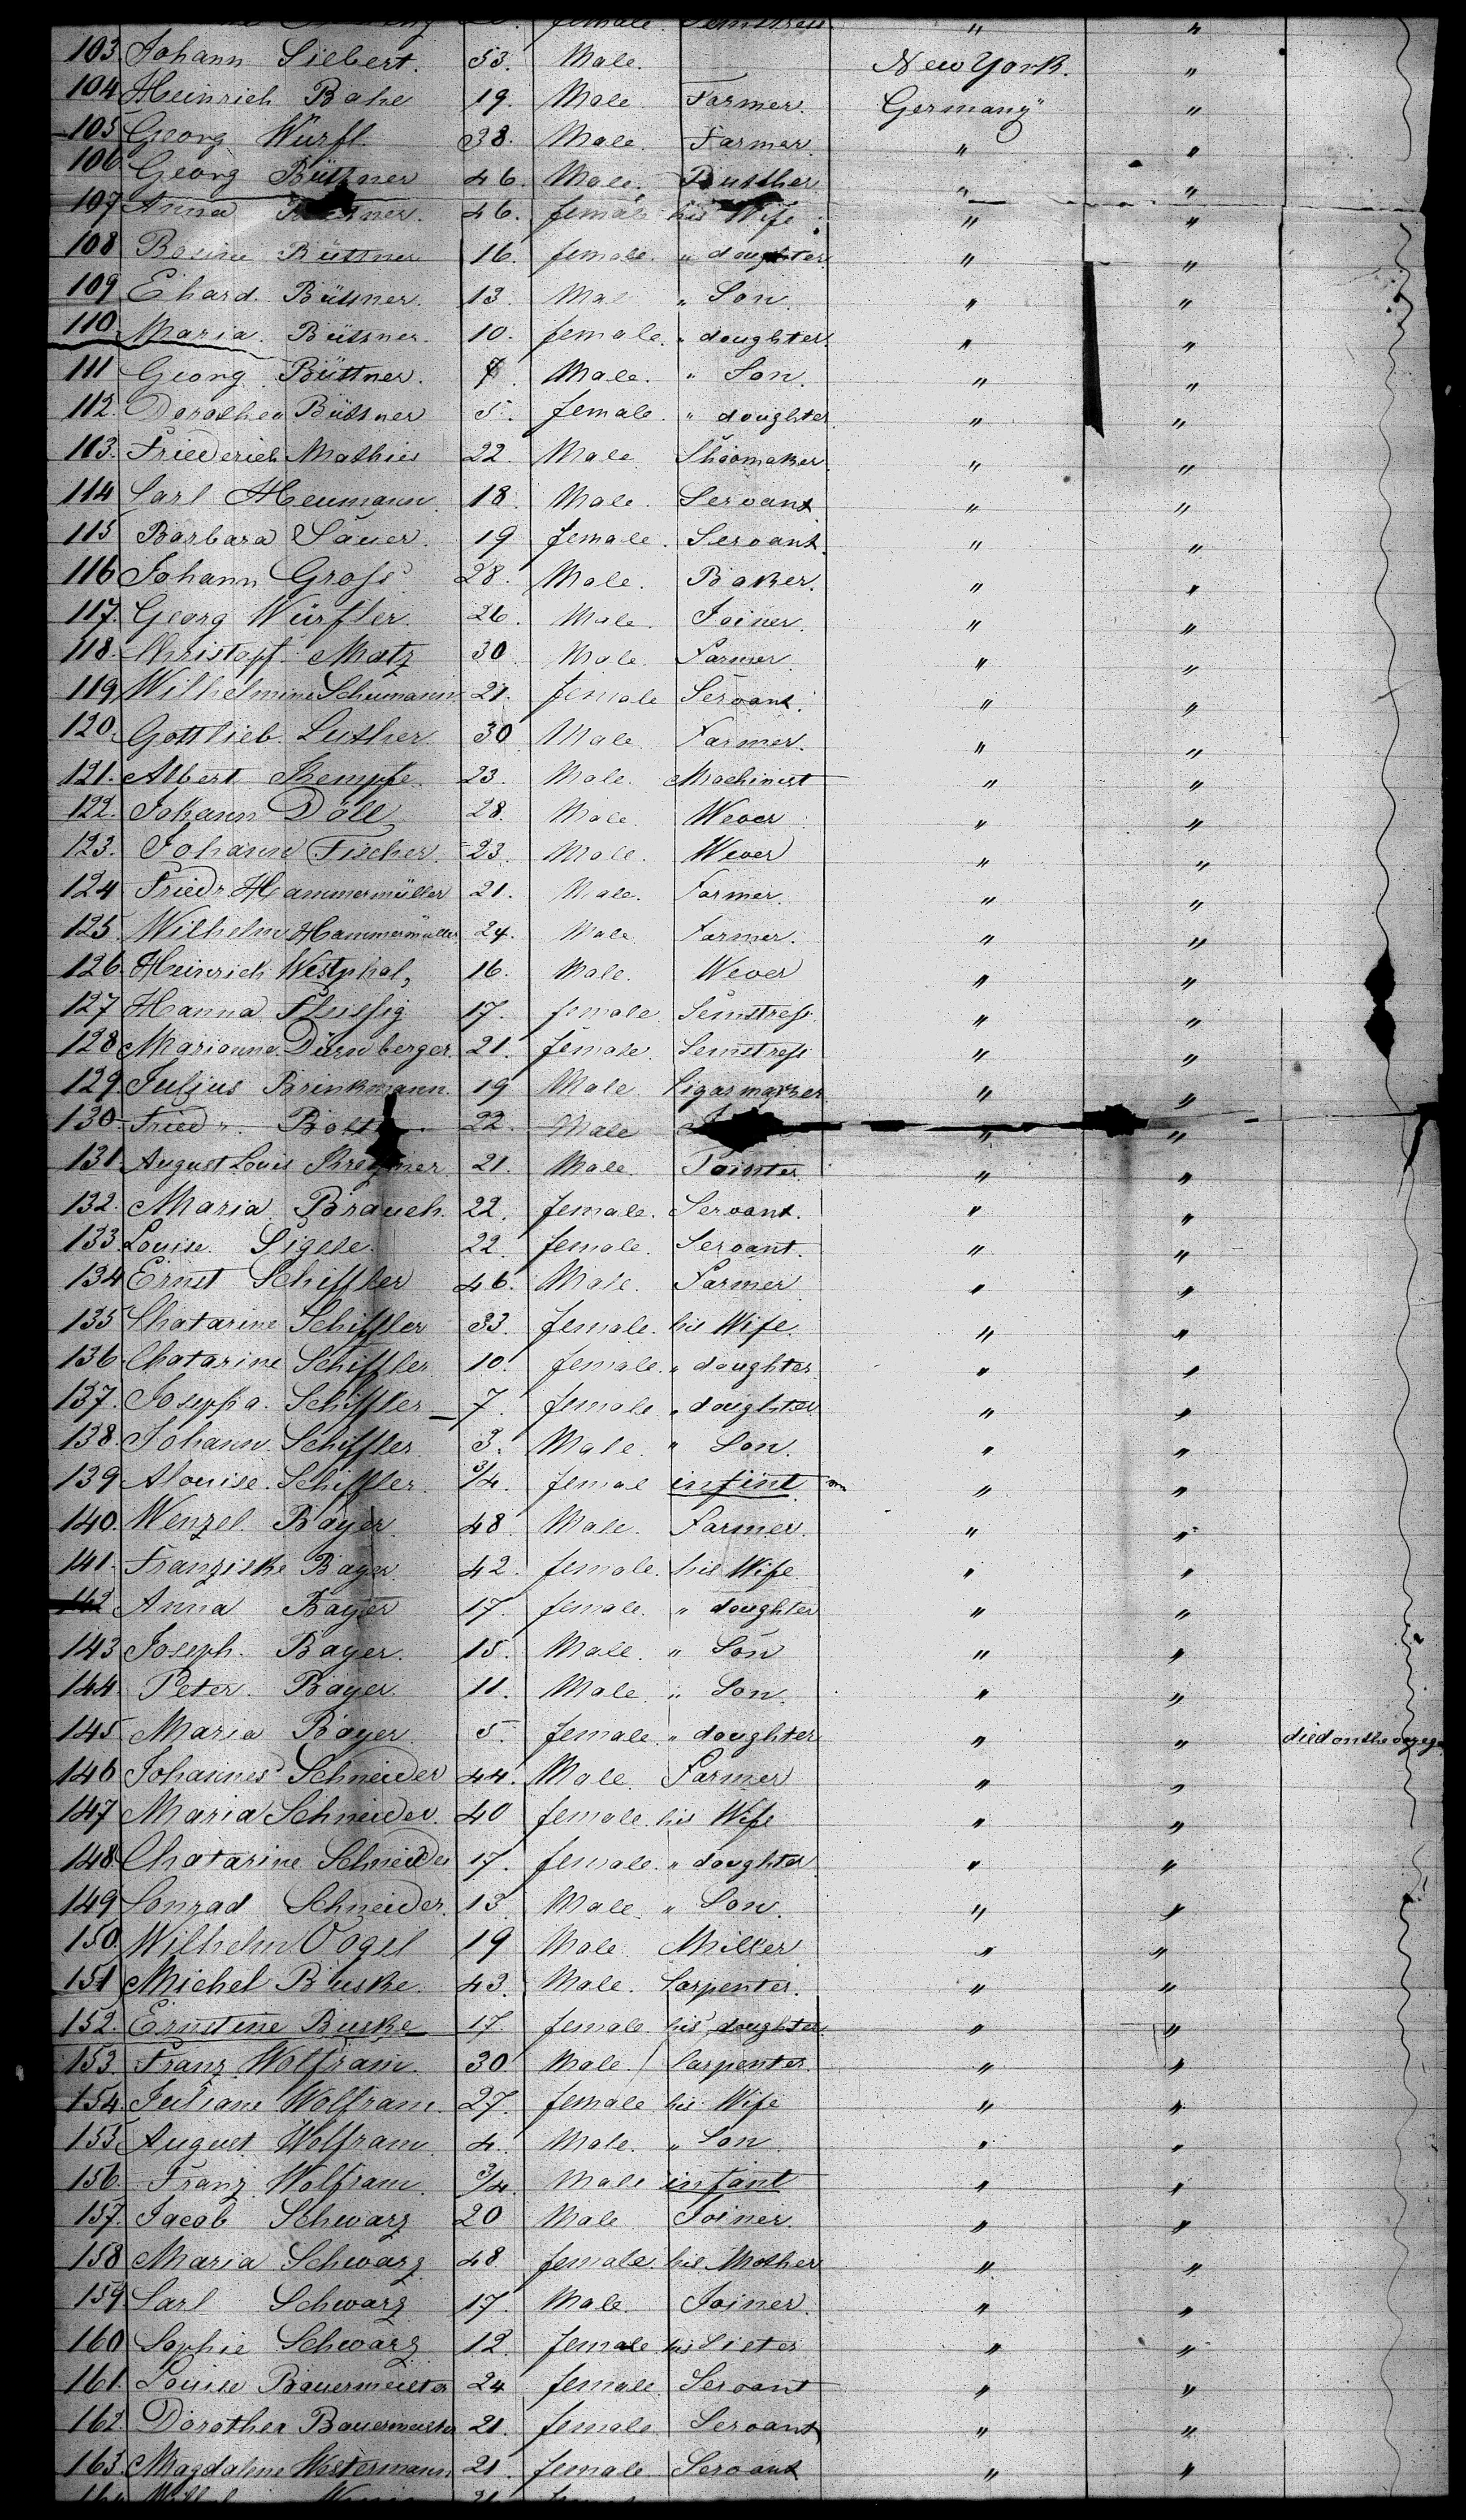 female Semstress " "
103 Johann Siebert. 53. Male. New York. "
104 Heinrich Bahe 19. Male Farmer. Germany "
105 Georg Würfl 38. Male. Farmer. " "
106 Georg Büttner 46. Male. Butther " "
107 Anna 46. female his Wife " "
108 Rosine Büttner 16. female. " doughter " "
109 Ehard. Büttner. 13. Mal " Son " "
110. Maria. Büttner. 10. female. " doughter. " "
111 Georg Büttner. 7. Male. " Son. " "
112. Dorothea Büttner 5. female. " doughter " "
113. Friederich Mathies 22. Male Shoomaker. " "
114 Carl Heumann. 18. Male. Servant " "
115 Barbara Sauer. 19 female. Servant. " "
116 Johann Gross 28. Male. Baker. " "
117. Georg Würfler. 26. Male. Joiner. " "
118. Christopf. Matz 30 Male. Farmer. " "
119 Wilhelmine Schumann. 21. female Servant. " "
120. Gottlieb. Luther. 30 Male Farmer. " "
121. Albert Kempfe. 23. Male. Machinist " "
122. Johann Döll 28. Male. Wever " "
123. Johann Fischer. 23. Male. Wever " "
124 Friedr Hammermüller 21. Male. Farmer. " "
125. Wilhelm Hammermüller 24. Male Farmer. " "
126. Heinrich Westphal, 16. Male. Wever " "
127 Hanna Flussig 17. female. Semstress " "
128 Marianna Dürnberger. 21. female. Semstress " "
129. Julius Brinkmann. 19 Male Cigarmarker " "
130. Friedr. 22. Male " "
131. August Louis 21. Male. Painter. " "
132. Maria Brauch. 22. female. Servant. " "
133 Louise. Sigele. 22. female. Servant. " "
134 Ernst Schiffler 46. Male. Farmer " "
135 Chatarine Schiffler 33. female. his Wife. " "
136 Chatarine Schiffler 10. female. " doughter. " "
137. Josepha. Schiffler 7. female. " doughter " "
138. Johann. Schiffler. 3. Male. " Son. " "
139 Alouise. Schiffler. 3/4. femal infint " "
140. Wenzel. Bayer. 48. Male. Farmer. " "
141. Franziske Bayer. 42. female. his Wife. " "
142 Anna Bayer 17. female. " doughter " "
143 Joseph. Bayer. 15. Male. " Son " "
144. Peter. Bayer. 11. Male. " Son. " "
145 Maria Bayer 5. female. " doughter " " died on the voyege
146 Johannes Schneider 44. Male. Farmer " "
147 Maria Schneider. 40 female. his Wife " "
148. Chatarine Schneider 17. female. " doughter " "
149 Conrad Schneider. 13. Male. " Son. " "
150. Wilhelm Vogel 19 Male. Miller " "
151 Michel Buske. 43. Male. Carpenter. " "
152. Ernstine Buske 17. female. his doughter. " "
153. Franz Wolfram. 30. Male. Carpenter. " "
154. Juliane Wolfram. 27. female his Wife " "
155 August Wolfram 4. Male. " Son " "
156. Franz Wolfram. 3/4. Male infant " "
157. Jacob Schwarz 20 Male Joiner. " "
158 Maria Schwarz 48 female. his Mother " "
159. Carl Schwarz 17. Male. Joiner. " "
160 Sophie Schwarz 12. female. his Sister " "
161. Louise Bauermeister 24 female. Servant " "
162. Dorothea Bauermeister 21. female. Servant " "
163. Magdaline Westermann 21. female. Servant " "